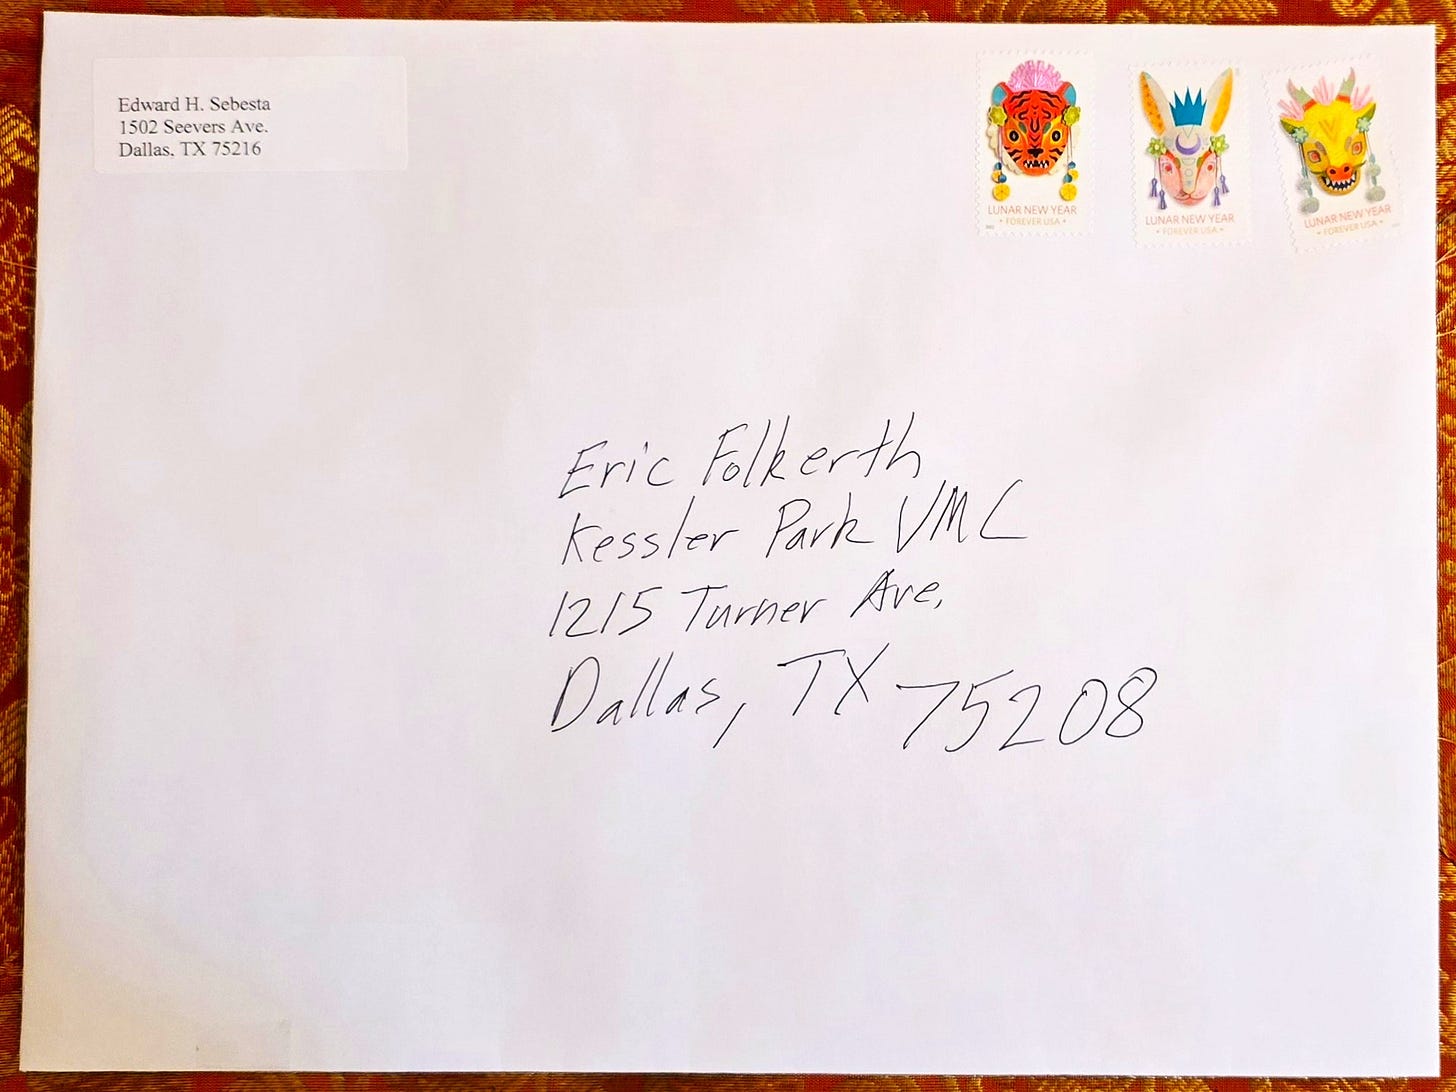 Edward H. Sebesta
1502 Seevers Ave.
Dallas, TX 75216
LUNAR NEW YEAR
• FOREVER USA •
LUNAR NEW YEAR
• FOREVER USA •
LUNAR NEW YEAR
• FOREVER USA •
Eric Folkerth
Kessler Park UMC
1215 Turner Ave.
Dallas, TX 75208